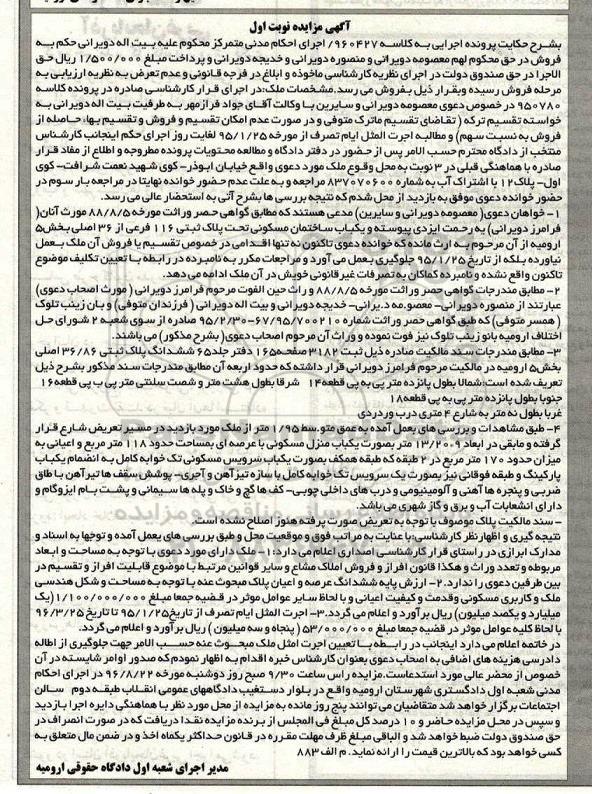 آگهی مزایده نوبت اول
بشرح حکایت پرونده اجرایی به کلاسه ۹۶۰۴۲۷/ اجرای احکام مدنی متمرکز محکوم علیه بیت اله دویرانی حکم به
فروش در حق محکوم لهم معصومه دویرانی و منصوره دویرانی و خدیجه دویرانی و پرداخت مبلغ ۱/۵۰۰/۰۰۰ ریال حق
الاجرا در حق صندوق دولت در اجرای نظریه کارشناسی ماخوذه و ابلاغ در فرجه قانونی و عدم تعرض به نظریه ارزیابی به
مرحله فروش رسیده وبقرار ذیل بفروش می رسد.مشخصات ملک:در اجرای قرار کارشناسی صادره در پرونده کلاسه
۹۵۰۷۸۰ در خصوص دعوی معصومه دویرانی و سایرین با وکالت آقای جواد فرازمهر به طرفیت بیت اله دویرانی به
خواسته تقسیم ترکه ( تقاضای تقسیم ماترک متوفی و در صورت عدم امکان تقسیم و فروش و تقسیم بها، حاصله از
فروش به نسبت سهم) و مطالبه اجرت المثل ایام تصرف از مورخه ۹۵/۱/۲۵ لغایت روز اجرای حکم اینجانب کارشناس
منتخب از دادگاه محترم حسب الامر پس از حضور در دفتر دادگاه و مطالعه محتویات پرونده مطروحه و اطلاع از مفاد قرار
صادره با هماهنگی قبلی در ۳ نوبت به محل وقوع ملک مورد دعوی واقع خیابان ابوذر- کوی شهید نعمت شرافت- کوی
اول- پلاک۱۲ با اشتراک آب به شماره ۸۳۷۰۷۰۶۰۰ مراجعه و به علت عدم حضور خوانده نهایتا در مراجعه بار سوم در
حضور خوانده دعوی موفق به بازدید از محل شدم که نتیجه بررسی ها بشرح آتی به استحضار عالی می رسد.
۱- خواهان دعوی( معصومه دویرانی و سایرین) مدعی هستند که مطابق گواهی حصر وراثت مورخه ۸۸/۸/۵ مورث آنان(
فرامرز دویرانی) به رحمت ایزدی پیوسته و یکباب ساختمان مسکونی تحت پلاک ثبتی ۱۱۶ فرعی از ۳۶ اصلی بخش۵
ارومیه از آن مرحوم به ارث مانده که خوانده دعوی تاکنون نه تنها اقدامی در خصوص تقسیم یا فروش آن ملک بعمل
نیاورده بلکه از تاریخ ۹۵/۱/۲۵ جلوگیری بعمل می آورد و مراجعات مکرر به نامبرده در رابطه با تعیین تکلیف موضوع
تاکنون واقع نشده و نامبرده کماکان به تصرفات غیر قانونی خویش در آن ملک ادامه می دهد.
۲- مطابق مندرجات گواهی حصر وراثت مورخه ۸۸/۸/۵ و راث حین الفوت مرحوم فرامرز دویرانی ( مورث اصحاب دعوی)
عبارتند از منصوره دویرانی- معصومه دویرانی- خدیجه دویرانی و بیت اله دویرانی ( فرزندان متوفی) و بان زینب تلوک
( همسر متوفی) که طبق گواهی حصر وراثت شماره ۶۷/۹۵/۷۰۰۲۱۰-۹۵/۲/۳۰ صادره از سوی شعبه ۲ شورای حل
اختلاف ارومیه بانو زینب تلوک نیز فوت نموده و وراث آن مرحوم اصحاب دعوی( بشرح مذکور) می باشند.
۳- مطابق مندرجات سند مالکیت صادره ذیل ثبت ۳۱۸۲ صفحه۱۶۵ دفتر جلد۶۵ ششدانگ پلاک ثبتی ۳۶/۸۶ اصلی
بخش۵ ارومیه در مالکیت مرحوم فرامرز دویرانی قرار داشته که حدود اربعه آن مطابق مندرجات سند مذکور بشرح ذیل
تعریف شده است:شمالا بطول پانزده متر پی به پی قطعه۱۴ شرقا بطول هشت متر و شصت سانتی متر پی ب پی قطعه۱۶
جنوبا بطول پانزده متر پی به پی قطعه۱۸
غربا بطول نه متر به شارع ۴ متری درب وردی
۴- طبق مشاهدات و بررسی های بعمل آمده به عمق متوسط ۱/۹۵ متر از ملک مورد بازدید در مسیر تعریض شارع قرار
گرفته و مابقی در ابعاد ۱۳/۲۰۰۹ متر بصورت یکباب منزل مسکونی با عرصه ای بمساحت حدود ۱۱۸ متر مربع و اعیانی به
میزان حدود ۱۷۰ متر مربع در ۲ طبقه که طبقه همکف بصورت یکباب سرویس مسکونی تک خوابه کامل به انضمام یکباب
پارکینگ و طبقه فوقانی نیز بصورت یک سرویس تک خوابه کامل با سازه تیرآهن و آجری- پوشش سقف ها تیر آهن با طاق
ضربی و پنجره ها آهنی و آلومینیومی و درب های داخلی چوبی- کف ها گچ و خاک و پله ها سیمانی و پشت بام ایزوگام و
دارای انشعابات آب و برق و گاز شهری می باشد.
- سند مالکیت پلاک موصوف با توجه به تعریض صورت پرفته هنوز اصلاح نشده است.
نتیجه گیری و اظهار نظر کارشناسی: با عنایت به مراتب فوق و موقعیت محل و طبق بررسی های بعمل آمده و توجها به اسناد و
مدارک ابرازی در راستای قرار کارشناسی اصداری اعلام می دارد:۱- ملک دارای مورد دعوی با توجه به مساحت و ابعاد
مربوطه و تعدد وراث و هکذا قانون افراز و فروش املاک مشاع و سایر قوانین مرتبط با موضوع قابلیت افراز و تقسیم در
بین طرفین دعوی را ندارد.۲- ارزش پایه ششدانگ عرصه و اعیان پلاک مبحوث عنه با توجه به مساحت و شکل هندسی
ملک و کاربری مسکونی وقدمت و کیفیت اعیانی و با لحاظ سایر عوامل موثر در قضیه جمعا مبلغ ۱/۱۰۰/۰۰۰/۰۰۰ (یک
میلیارد و یکصد میلیون) ریال برآورد و اعلام می گردد.۳- اجرت المثل ایام تصرف از تاریخ۹۵/۱/۲۵ تا تاریخ ۹۶/۳/۲۵
با لحاظ کلیه عوامل موثر در قضیه جمعا مبلغ ۵۳/۰۰۰/۰۰۰ ( پنجاه و سه میلیون ) ریال برآورد و اعلام می گردد.
در خاتمه اعلام می دارد اینجانب در رابطه با تعیین اجرت امثل ملک مبحوث عنه حسب الامر جهت جلوگیری از اطاله
دادرسی هزینه های اضافی به اصحاب دعوی بعنوان کارشناس خبره اقدام به اظهار نمودم که صدور اوامر شایسته در آن
خصوص از محضر عالی مورد استدعاست.مزایده راس ساعت ۹/۳۰ صبح روز دوشنبه مورخه ۹۶/۸/۲۲ در اجرای احکام
مدنی شعبه اول دادگستری شهرستان ارومیه واقع در بلوار دستغیب دادگاههای عمومی انقلاب طبقه دوم سالن
اجتماعات برگزار خواهد شد متقاضیان می توانند پنج روز مانده به مزایده از محل مورد نظر با هماهنگی دایره اجرا بازدید
و سپس در محل مزایده حاضر و ۱۰ درصد کل مبلغ فی المجلس از برنده مزایده نقدا دریافت که در صورت انصراف در
حق صندوق دولت ضبط خواهد شد و الباقی مبلغ ظرف مهلت مقرره در قانون حداکثر یکماه اخذ و در ضمن مال متعلق به
کسی خواهد بود که بالاترین قیمت را ارائه نماید. م الف ۸۸۳
مدیر اجرای شعبه اول دادگاه حقوقی ارومیه